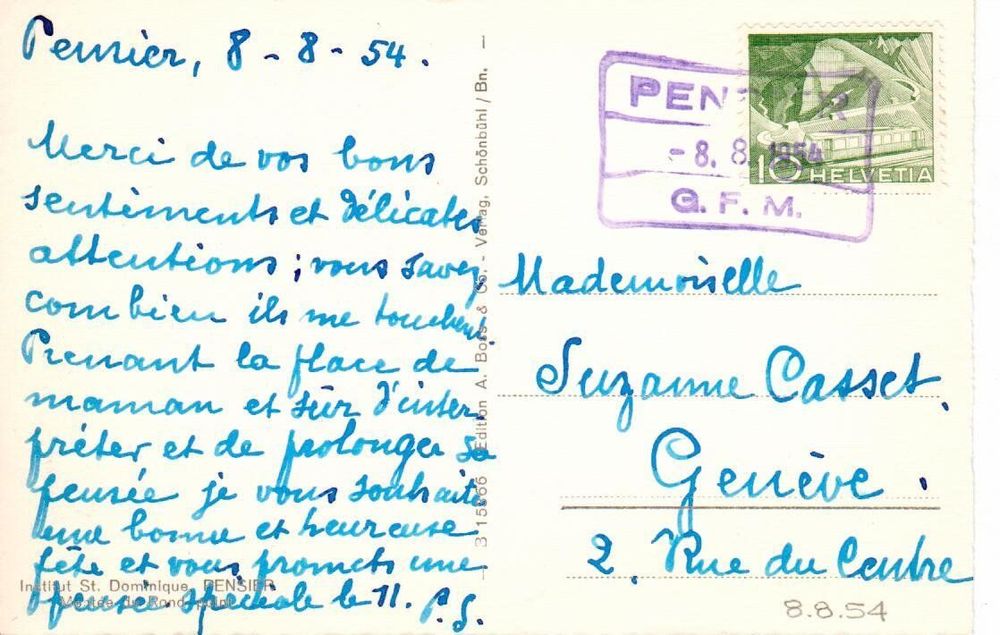 Pensier, 8 - 8 - 54.
Merci de vos bons
sentiments et délicates
attentions ; vous savez
combien ils me touchent.
Prenant la place de
maman et sûr d'inter
préter et de prolonger sa
pensée je vous souhaite
une bonne et heureuse
fête et vous promets une
pensée spéciale le 11. P.S.
Institut St. Dominique, PENSIER
Montée du Rond-point
B 15966 Edition A. Boss & Co. - Verlag, Schönbühl / Bn. -
PENSIER
- 8. 8. 1954
G. F. M.
10 HELVETIA
Mademoiselle
Suzanne Casset.
Genève.
2. Rue du Centre
8.8.54